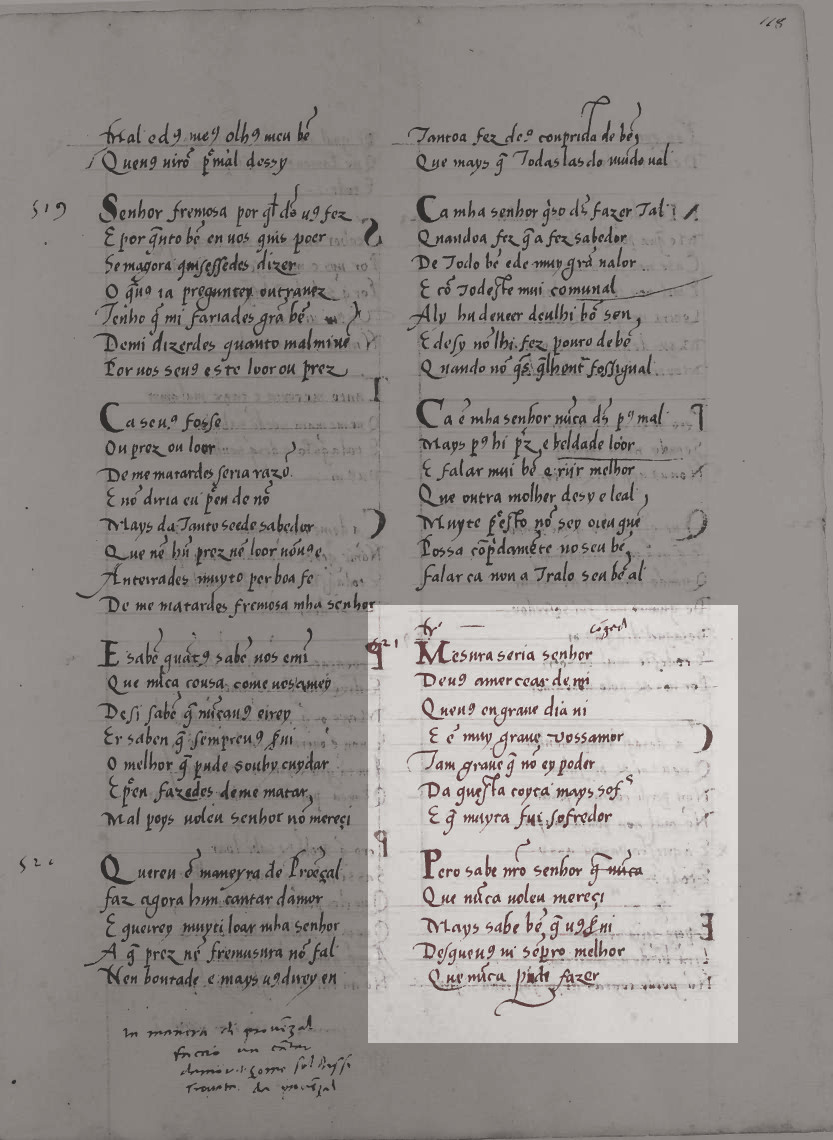 Mal e d9 me9 olh9 meu bẽ
Queu9 nirõ p̃ mal dessy
519
Senhor fremosa por q̃l dẽ u9 fez
E por q̃nto bẽ en uos quis poer
Se magora quisessedes dizer
O q̃ u9 ia preguntey outra uez
Tenho q̃ mi fariades grã bẽ
De mi dizerdes quanto mal mi uẽ
Por uos seu9 este loor ou prez
Ca seu9 fosse
Ou prez ou loor
De me matardes seria razõ
E nõ diria eu p̃en de nõ
Mays da tanto seede sabedor
Que nẽ hũ prez nẽ loor nõu9 e
Anteirades muyto per boa fe
De me matardes fremosa mha senhor
E sabẽ quãt9 sabẽ uos e mĩ
Que nũca cousa come uos amey
Desi sabẽ q̃ nũcau9 eirey
Er saben q̃ sempreu9 ſ̃ui
O melhor q̃ pude souby cuydar
E p̃en fazedes de me matar,
Mal poys uoleu senhor nõ mereçi
520
Quereu ẽ maneyra de Proẽçal
faz agora hun cantar damor
E querrey muyti loar mha senhor
A q̃ prez nẽ fremusura nõ fal
Nen bontade e mays u9 direy en
In maniera di provẽzal
faccio un cãtar
damor
trovata da provẽzal
118
Tantoa fez de9 conprida de bẽ,
Que mays q̃ Todas las do mũdo ual
Ca mha senhor q̃so dš fazer Tal
Quandoa fez q̃ a fez sabedor
De Todo bẽ e de muy grã ualor
E cõ Todeste mui comunal
Aly hu deueer deulhi bõ sen,
E desy nõ lhi fez pouco de bẽ
Quando nõ q̃s q̃ lhout fossigual
Ca ẽ mha senhor nũca dš p9 mal
Mays p9 hi p̃z, e beldade loor
E falar mui bẽ e riir melhor
Que outra molher desy e leal,
Muyte p̃esto nõ sey oieu quẽ
Possa cõpdamẽte no seu bẽ,
falar ca non a Tralo seu bẽ al
521
Mesura seria senhor
Deu9 amercear de mi
Queu9 en graue dia ui
E ẽ muy graue uossamor
Tam graue q̃ nõ ey poder
Da questa coyta mays sofs
E q̃ muyta fui sofredor
Pero sabe nr̃o senhor q̃ nũca
Que nũca uoleu mereçi
Mays sabe bẽ q̃ u9 ſ̃ui
Desqueu9 ui sẽpro melhor
Que nũca pude fazer